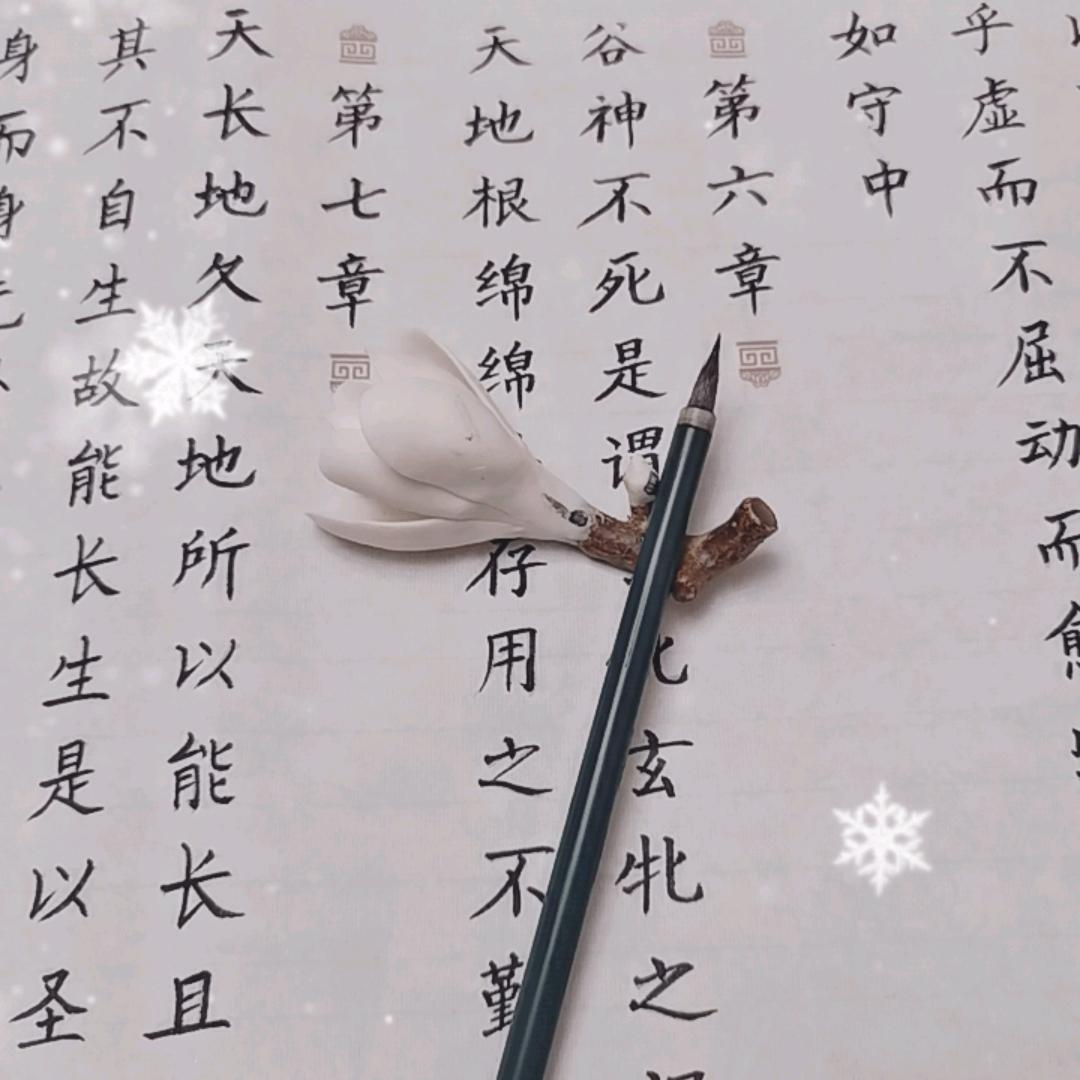 乎虚而不屈动而愈
如守中
第六章
谷神不死是谓牝玄牝之
天地根绵绵存用之不勤
第七章
天长地久天地所以能长且
其不自生故能长生是以圣
身而身